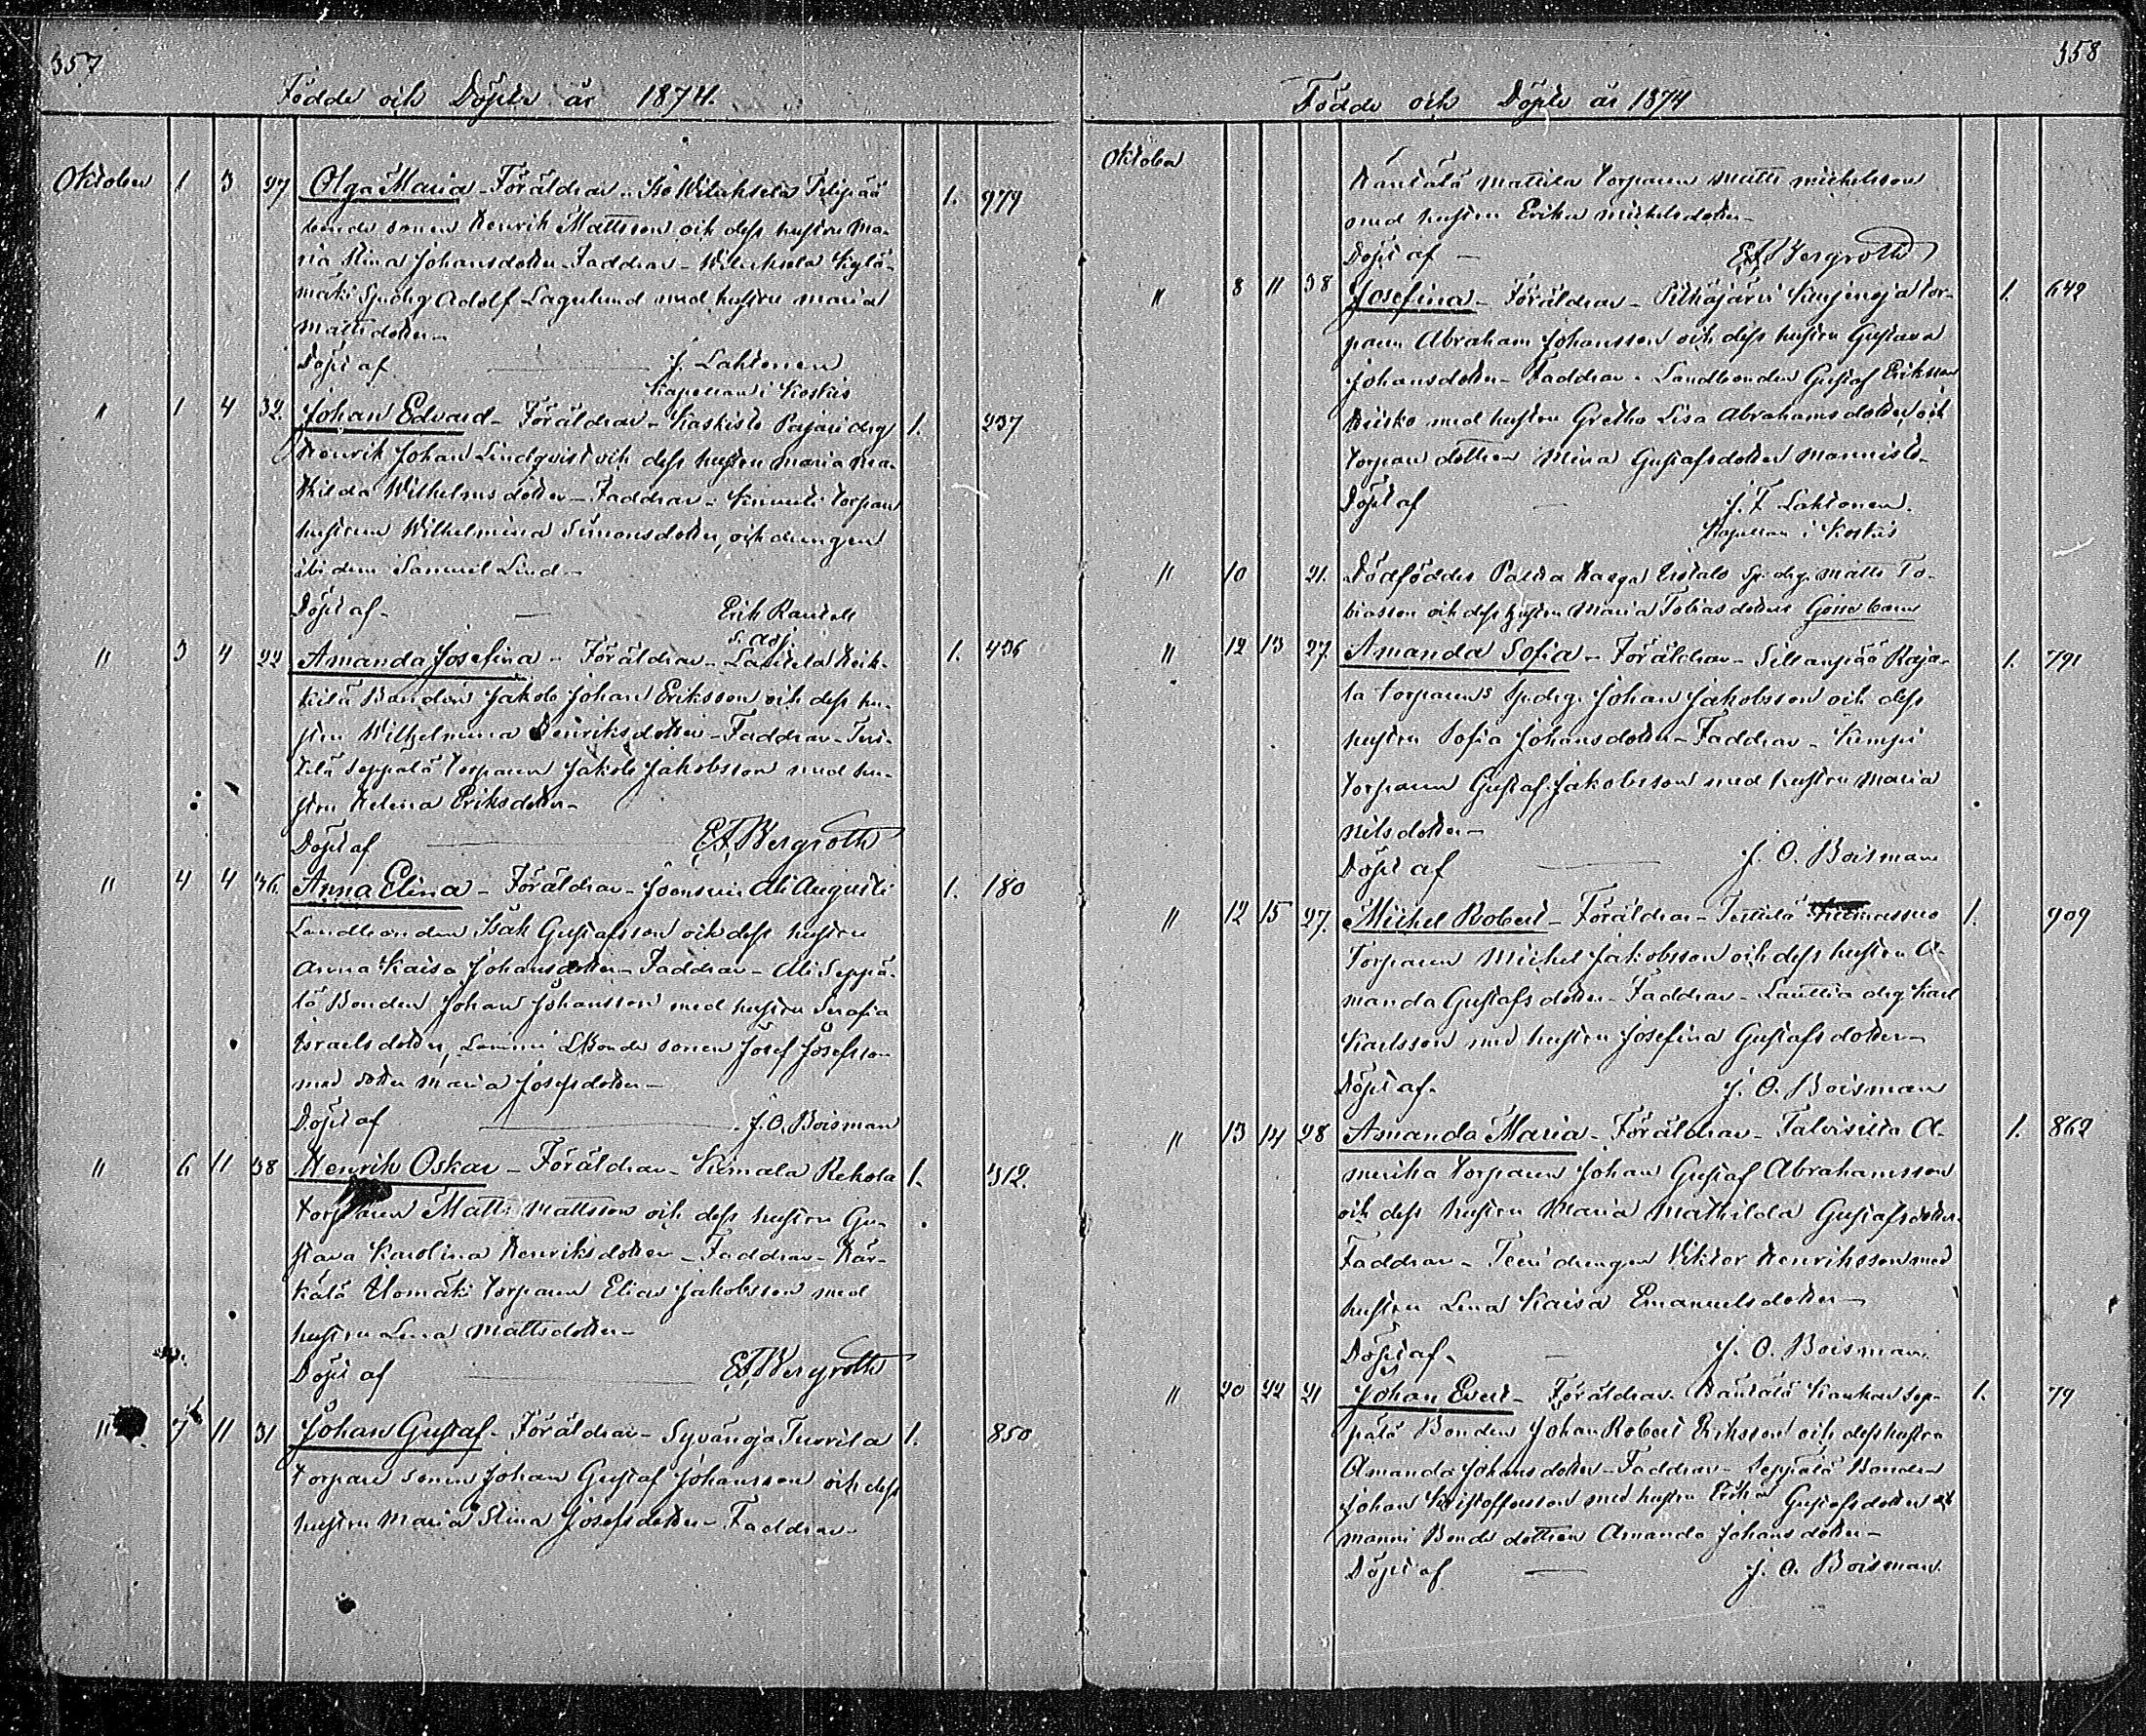 357
Födde och Döpte år 1874.
Oktober 1 3 27 Olga Maria - Föräldrar - Iso Wiluksela Filpää 1. 979
bonde sonen Henrik Mattsson och dess hustru Ma-
ria Stina Johansdotter - Faddrar - Wiluksela Kylä-
mäki Spmdrg Adolf Lagerlund med hustru Maria
Mattsdotter -
Döpt af J. Lahtonen
Kapellan i Koskis
" 1 4 32. Johan Edvard - Föräldrar - Kaskisto Pajari drg 1. 237
Henrik Johan Lindqvist och dess hustru Maria Ma-
thilda Wilhelmsdotter - Faddrar - torpare
hustrun Wilhelmina Simonsdotter, och drengen
ibidem Samuel Lind -
Döpt af - Erik Rantell
s. adj.
" 3 4 22 Amanda Josefina - Föräldrar - Lauttela Heik- 1. 436
kilä Bonden Jakob Johan Eriksson och dess hu-
stru Wilhelmina Henriksdotter - Faddrar -
Seppälä torparen Jakob Jakobsson med hu-
stru Helena Eriksdotter -
Döpt af E F Bergroth
" 4 4 36. Anna Elina - Föräldrar - Joensuu Ali Augusti 1. 180
Landbonden Isak Gustafsson och dess hustru
Anna Kaisa Johansdotter - Faddrar - Ali Seppä-
lä Bonden Johan Johansson med hustru Serafia
Israelsdotter, LBonde sonen Josef Josefsson
med dotter Maria Josefsdotter -
Döpt af J. O. Boisman
" 6 11 38 Henrik Oskar - Föräldrar - Kumala Rekola 1. 312.
torparen Matts Mattsson och dess hustru Gu-
stava Karolina Henriksdotter - Faddrar - Här-
kälä Ulomäki torparen Elias Jakobsson med
hustru Lena Mattsdotter -
Döpt af E F Bergroth
" 7 11 31 Johan Gustaf - Föräldrar - Syvänoja Tuorila 1. 850
torpare sonen Johan Gustaf Johansson och dess
hustru Maria Stina Josefsdotter - Faddrar -
358
Födde och Döpte år 1874
Oktober
Hautälä Mattila torparen Matts Michelsson
med hustru Erika Michelsdotter -
Döpt af - E F Bergroth
" 8 11 38 Josefina - Föräldrar - Pitkäjärvi tor- 1. 642
paren Abraham Johansson och dess hustru Gustava
Johansdotter - Faddrar - Landbonden Gustaf Eriksson
med hustru Gretha Lisa Abrahamsdotter, och
torpare dottren Mina Gustafsdotter Mannisto -
Döpt af J. F Lahtonen.
Kapellan i Koskis
" 10 21. Dödföddes Paltta Spdrg. Matts To-
biasson och dess hustru Maria Tobiasdotters Gosse barn
" 12 13 27. Amanda Sofia - Föräldrar - Sillanpää Raja- 1. 791
la torparens Spdrg. Johan Jakobsson och dess
hustru Sofia Johansdotter - Faddrar - Kemppi
torparen Gustaf Jakobsson med hustru Maria
Nilsdotter -
Döpt af J. O. Boisman
" 12 15 27. Michel Robert - Föräldrar - Tuimasuo 1. 909
Torparen Michel Jakobsson och dess hustru A-
manda Gustafsdotter - Faddrar - Lauttia drg Karl
Karlsson med hustru Josefina Gustafsdotter -
Döpt af - J. O. Boisman
" 13 14 28 Amanda Maria - Föräldrar - Talvisilta A- 1. 862
merika torparen Johan Gustaf Abrahamsson
och dess hustru Maria Mathilda Gustafsdotter -
Faddrar - Teeri drengen Viktor Henriksson med
hustru Lena Kaisa Emanuelsdotter -
Döpt af - J. O. Boisman.
" 20 22 21 Johan Evert - Föräldrar - Hautälä Kankar Sep- 1. 79
pälä Bonden Johan Robert Eriksson och dess hustru
Amanda Johansdotter - Faddrar - Seppälä Bonden
Johan Kristoffersson med hustru Erika Gustafsdotter och
manni Bonde dottren Amanda Johansdotter -
Döpt af - J. O. Boisman.